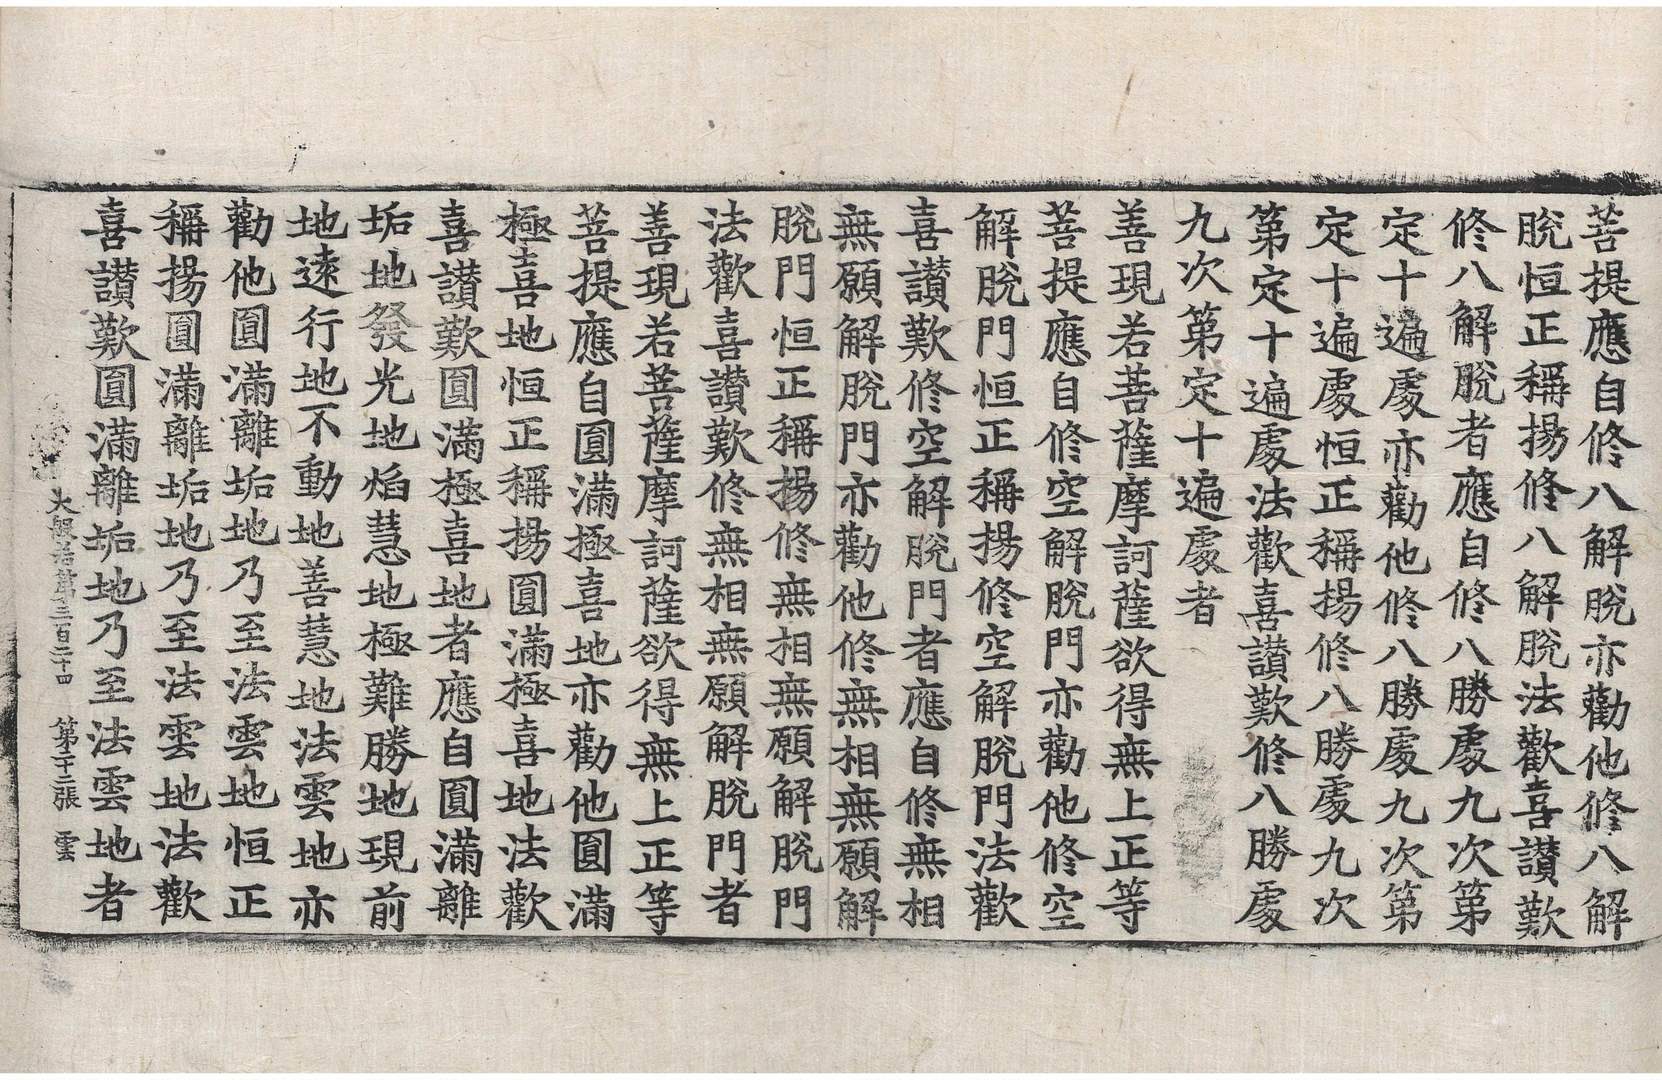 菩提應自修八解脫亦勸他修八解
脫恒正稱揚修八解脫法歡喜讃歎
修八解脫者應自修八勝處九次第
定十遍處亦勸他修八勝處九次第
定十遍處恒正稱揚修八勝處九次
第定十遍處法歡喜讃歎修八勝處
九次第定十遍處者
善現若菩薩摩訶薩欲得無上正等
菩提應自修空解脫門亦勸他修空
解脫門恒正稱揚修空解脫門法歡
喜讃歎修空解脫門者應自修無相
無願解脫門亦勸他修無相無願解
脫門恒正稱揚修無相無願解脫門
法歡喜讃歎修無相無願解脫門者
善現若菩薩摩訶薩欲得無上正等
菩提應自圓滿極喜地亦勸他圓滿
極喜地恒正稱揚圓滿極喜地法歡
喜讃歎圓滿極喜地者應自圓滿離
垢地發光地焰慧地極難勝地現前
地遠行地不動地善慧地法雲地亦
勸他圓滿離垢地乃至法雲地恒正
稱揚圓滿離垢地乃至法雲地法歡
喜讃歎圓滿離垢地乃至法雲地者
大般若第三百二十四 第十三張 雲